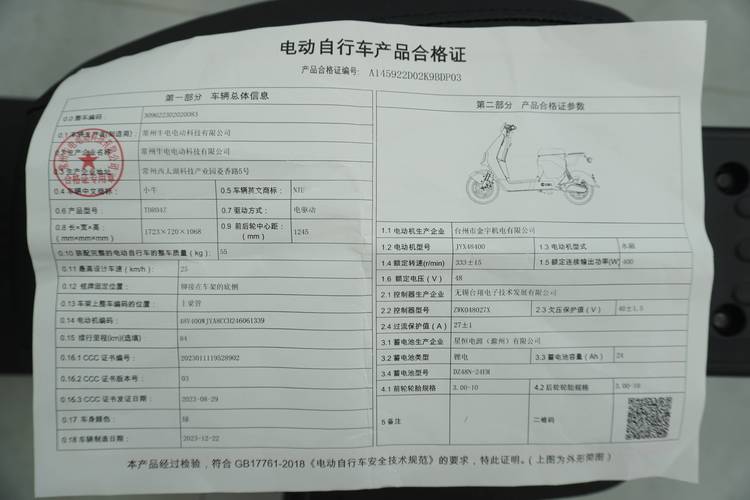 电动自行车产品合格证
产品合格证编号: A145922D02K9BDP03
第一部分 车辆总体信息
0.0 整车编码: 309022302020083
0.1 车辆生产商(制造商): 常州牛电电动科技有限公司
0.2 生产企业名称: 常州牛电电动科技有限公司
0.3 生产企业地址: 常州西太湖科技产业园菱香路5号
0.4 车辆中文商标: 小牛 0.5 车辆英文商标: NIU
0.6 产品型号: TDR04Z 0.7 驱动方式: 电驱动
0.8 长*宽*高: (mm*mm*mm) 1723*720*1068 0.9 前后轮中心距: (mm) 1245
0.10 装配完整的电动自行车的整车质量(kg): 55
0.11 最高设计车速(km/h): 25
0.12 铭牌固定位置: 铆接在车架的底侧
0.13 车架上整车编码的位置: 上梁管
0.14 电动机编码: 48V400WJYA8CCH246061339
0.15 续行里程(km)(选填) 84
0.16.1 CCC 证书编号: 2023011119528902
0.16.2 CCC 证书版本号: 03
0.16.3 CCC 证书发证日期: 2023-08-29
0.17 车身颜色: 绿
0.18 车辆制造日期: 2023-12-22
合格证专用章
第二部分 产品合格证参数
1.1 电动机生产企业 台州市金宇机电有限公司
1.2 电动机型号 JYX48400 1.3 电动机型式 永磁
1.4 额定转速(r/min) 333±15 1.5 额定连续输出功率(W) 400
1.6 额定电压(V) 48
2.1 控制器生产企业 无锡台翔电子技术发展有限公司
2.2 控制器型号 ZWK048027X 2.3 欠压保护值(V) 40±1.5
2.4 过流保护值(A) 27±1
3.1 蓄电池生产企业 星恒电源(滁州)有限公司
3.2 蓄电池类型 锂电 3.3 蓄电池容量(Ah) 24
3.4 蓄电池型号 DZ48N-24EM
4.1 前轮轮胎规格 3.00-10 4.2 后轮轮胎规格 3.00-10
5 备注 / 二维码
本产品经过检验,符合 GB17761-2018《电动自行车安全技术规范》的要求,特此证明。(上图为外形简图)